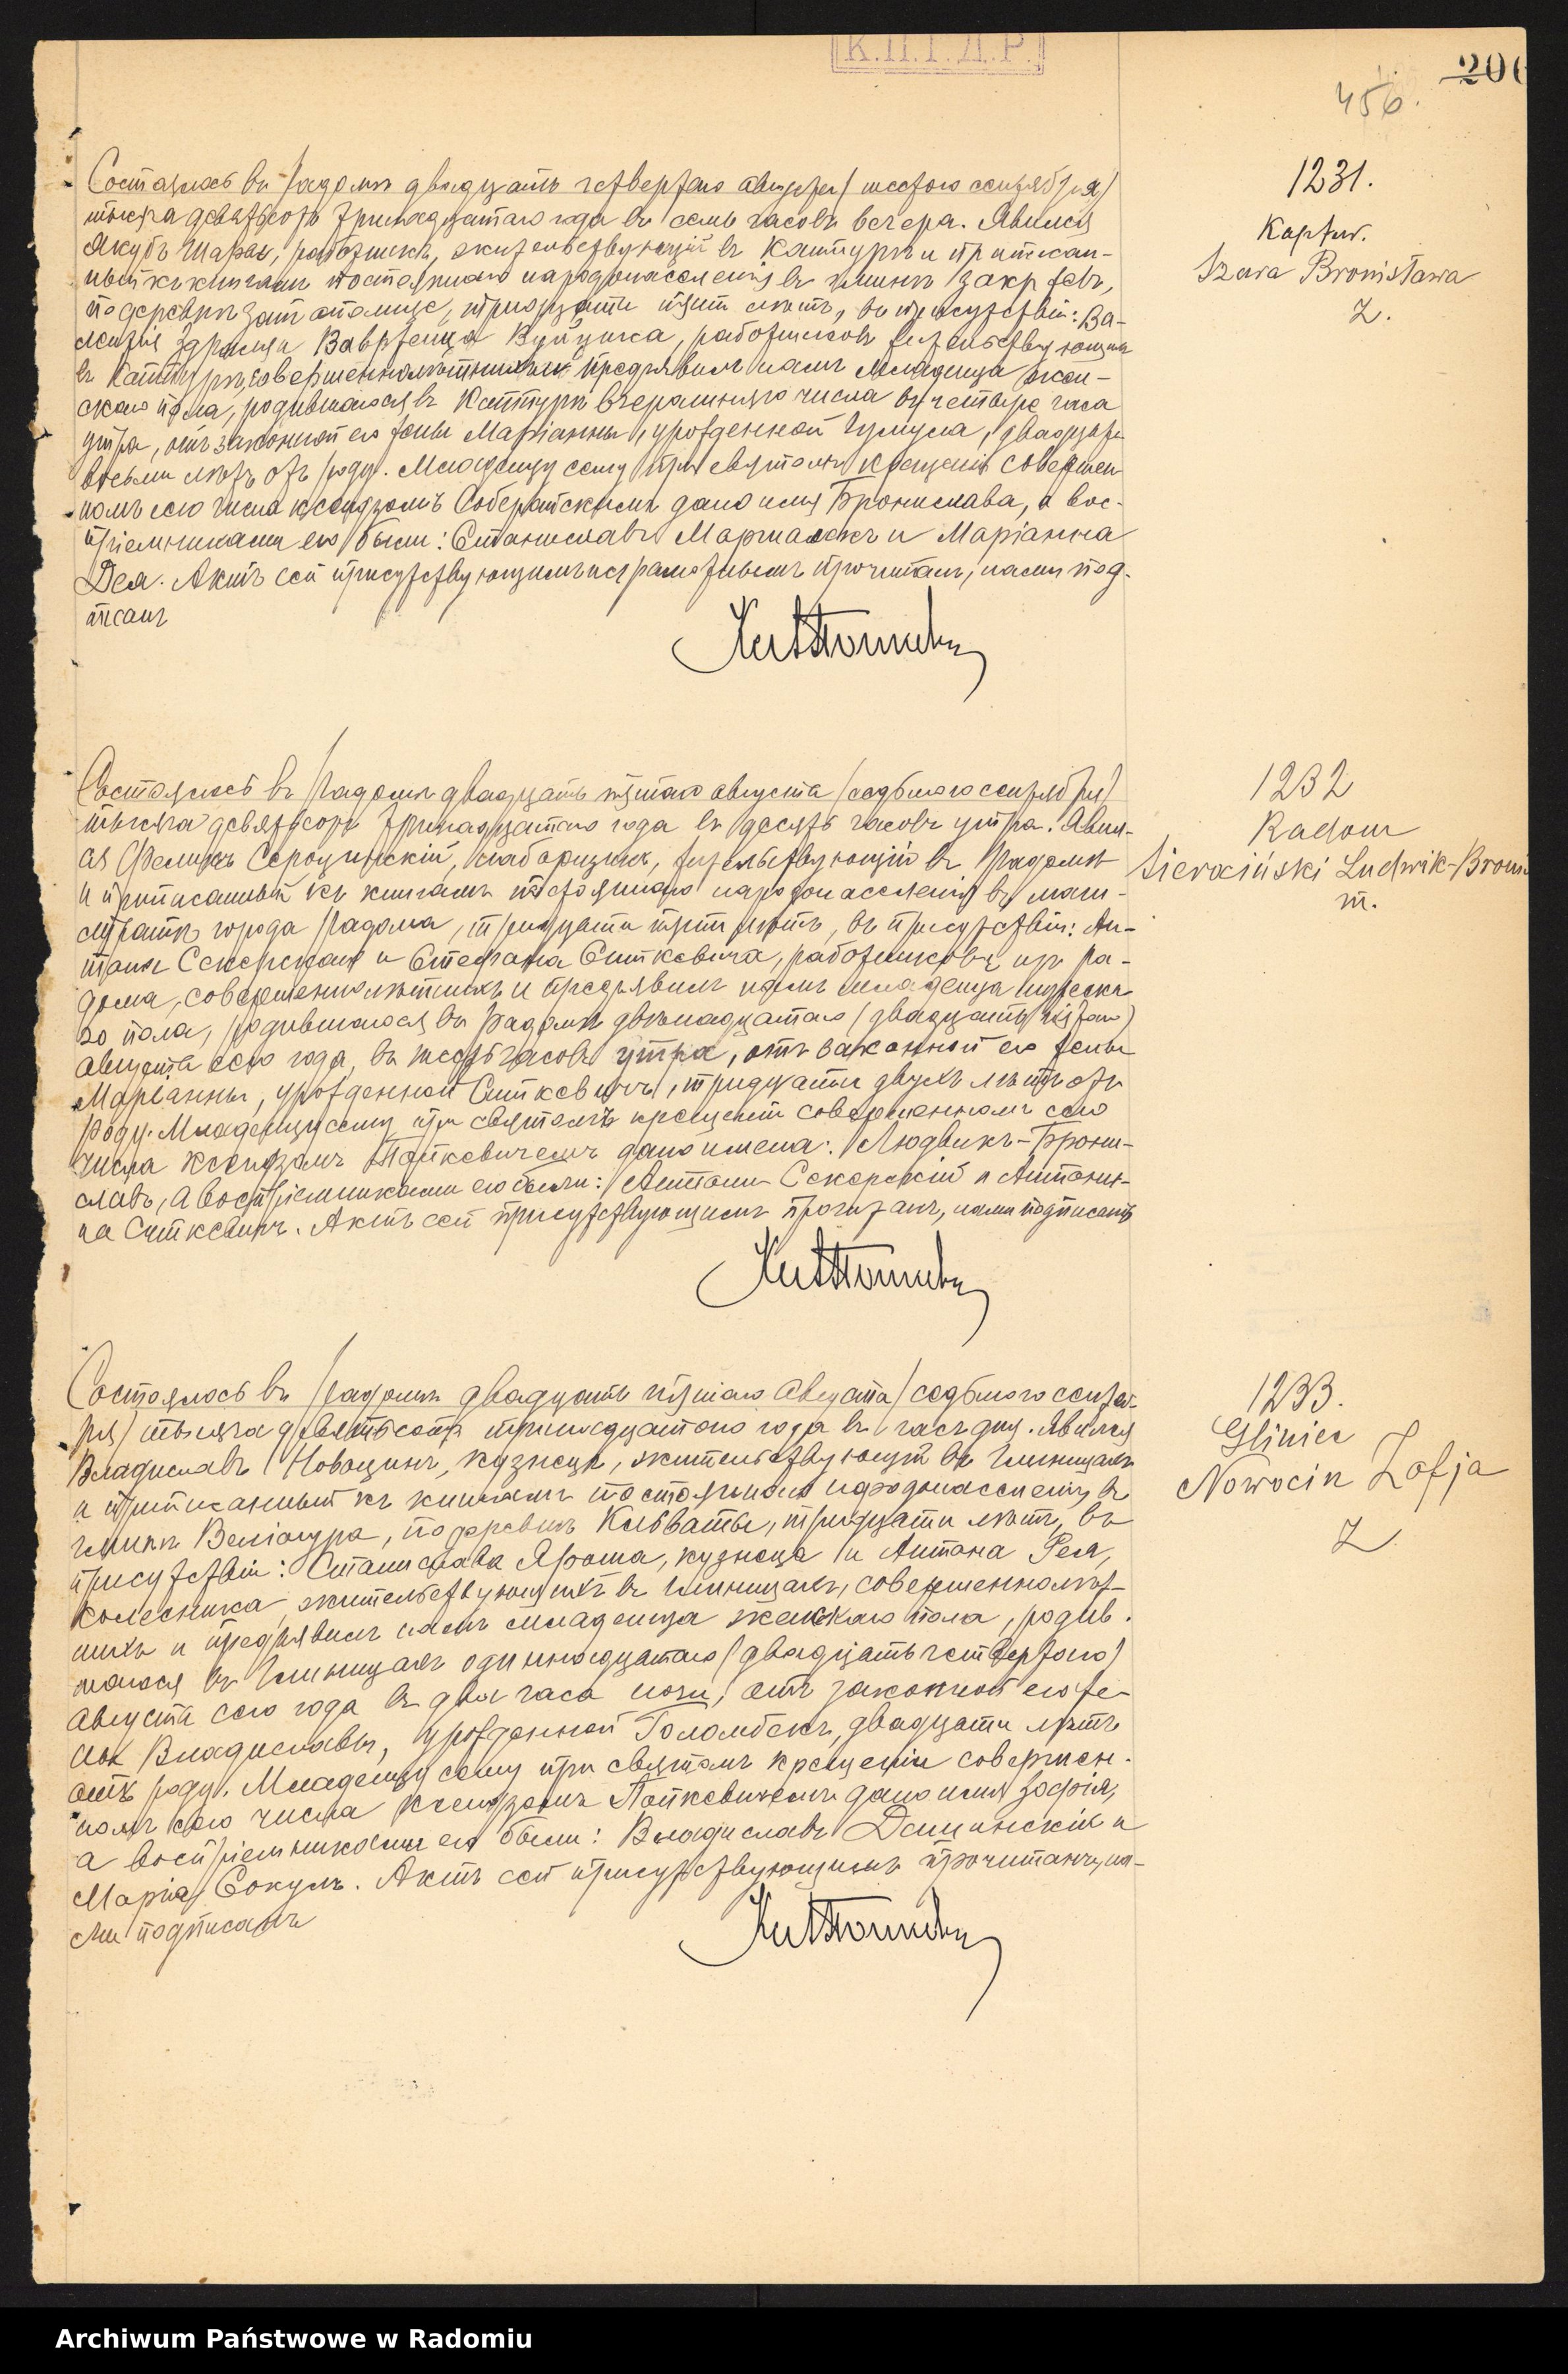 К.П.Г.Д.Р.
206
456.
1231.
Kaptur.
Szara Bronisława
Z.
Состоялось въ Радомѣ двадцать четвертаго августа (шестого сентября)
тысяча девятьсотъ тринадцатаго года въ семь часовъ вечера. Явился
Якубъ Шарый, работникъ, жительствующій въ Каптурѣ и приписан-
ный къ книгамъ постояннаго народонаселенія въ гминѣ Закржевъ,
по деревнѣ, тридцати пяти лѣтъ, въ присутствіи: Ва-
и Вавржеица Вуйцика, работниковъ жительствующихъ
въ Каптурѣ, совершеннолѣтнихъ и предъявилъ намъ младенца жен-
скаго пола, родившагося въ Каптурѣ вчерашняго числа въ четыре часа
утра, отъ законной его жены Маріанны, урожденной, двадцати
восьми лѣтъ отъ роду. Младенцу сему при святомъ крещеніи совершен
номъ сего числа ксендзомъ дано имя Бронислава, а вос-
пріемниками его были: Станиславъ и Маріанна
Дея. Актъ сей присутствующимъ неграмотнымъ прочитанъ, нами под-
писанъ
1232
Radom
Sierociński Ludwik-Broni
m.
Состоялось въ Радомѣ двадцать пятаго августа (седьмого сентября)
тысяча девятьсотъ тринадцатаго года въ десять часовъ утра. Явил-
ся Феликсъ Сероцинскій, жительствующій въ Радомѣ
и приписанный къ книгамъ постояннаго народонаселенія въ маги-
стратѣ города Радома, тридцати трехъ лѣтъ, въ присутствіи: Ан-
тона Секерскаго и Стефана Ситкевича, работниковъ изъ Ра-
дома, совершеннолѣтнихъ и предъявилъ намъ младенца мужеска-
го пола, родившагося въ Радомѣ двѣнадцатаго (двадцать пятаго)
августа сего года въ шесть часовъ утра, отъ законной его жены
Маріанны, урожденной Ситкевичъ, тридцати двухъ лѣтъ отъ
роду. Младенцу сему при святомъ крещеніи совершенномъ сего
числа ксендзомъ Попкевичемъ дано имена: Людвикъ-Брони-
славъ, а воспріемниками его были: Антони Секерскій и Антони-
на Ситкевичъ. Актъ сей присутствующимъ прочитанъ, нами подписанъ
1233.
Glinice
Nowocin Zofja
Z
Состоялось въ Радомѣ двадцать пятаго августа (седьмого сентяб-
ря) тысяча девятьсотъ тринадцатаго года въ часъ дня. Явился
Владиславъ Новоцинъ, кузнецъ, жительствующій въ Глиницахъ
и приписанный къ книгамъ постояннаго народонаселенія въ
гминѣ Велюгура, по деревнѣ Кльваты, тридцати лѣтъ, въ
присутствіи: Станислава Яроша, кузнеца и Антона Рея,
колесника, жительствующихъ въ Глиницахъ, совершеннолѣт-
нихъ и предъявилъ намъ младенца женскаго пола, родив-
шагося въ Глиницахъ одиннадцатаго (двадцать четвертаго)
августа сего года въ два часа ночи, отъ законной его же-
ны Владиславы, урожденной Голомбекъ, двадцати лѣтъ
отъ роду. Младенцу сему при святомъ крещеніи совершен-
номъ сего числа ксендзомъ Попкевичемъ дано имя Зофія,
а воспріемниками его были: Владиславъ и
Марія Сокулъ. Актъ сей присутствующимъ прочитанъ, на-
ми подписанъ
Archiwum Państwowe w Radomiu